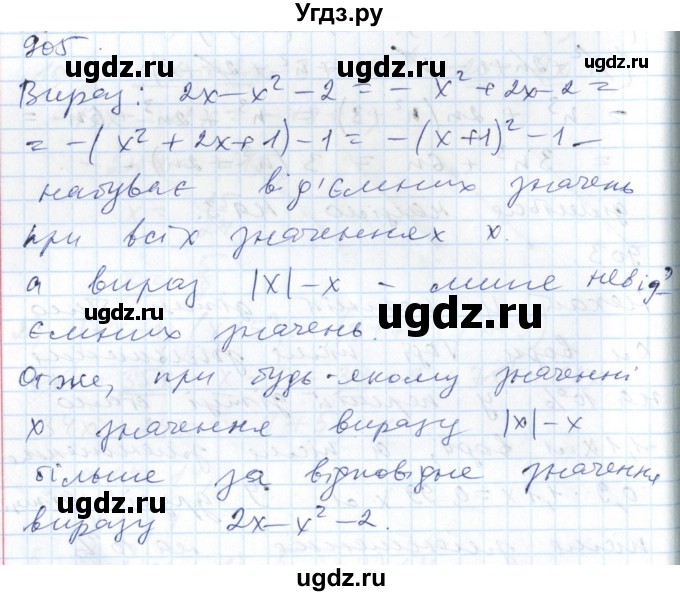 Угдз.ру
905
ugdz.ru ugdz.ru
Вираз: 2x - x² - 2 = - x² + 2x - 2 =
= -( x² + 2x + 1) - 1 = - (x + 1)² - 1 -
набуває від'ємних значень
ugdz.ru
при всіх значеннях x.
а вираз |x| - x - лише невід'
ugdz.ru ugdz.ru
ємних значень.
Отже, при будь-якому значенні
x значення виразу |x| - x
ugdz.ru
більше за відповідне значення
ugdz.ru ugdz.ru
виразу 2x - x² - 2.
ugdz.ru